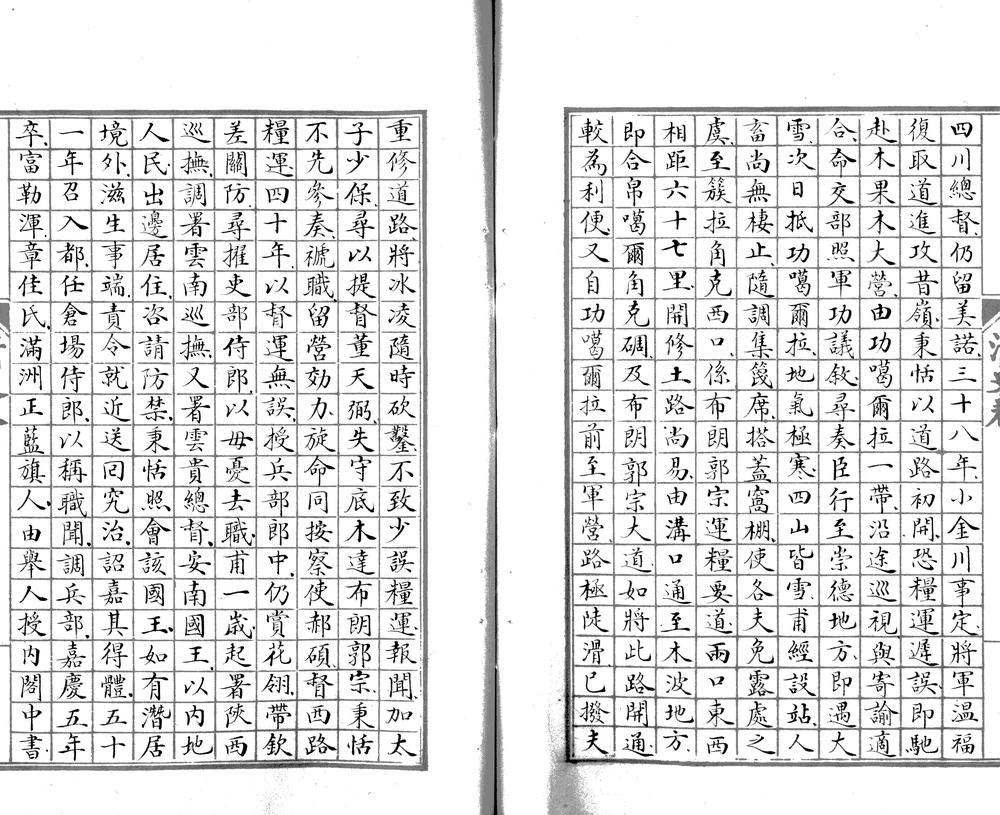 四川總督仍留美諾三十八年小金川事定將軍溫福
復取道進攻昔嶺秉恬以道路初開恐糧運遲誤即馳
赴木果木大營由功噶爾拉一帶沿途巡視與寄諭適
合命交部照軍功議敘尋奏臣行至崇德地方即遇大
雪次日抵功噶爾拉地氣極寒四山皆雪甫經設站人
畜尚無棲止隨調集篾席搭蓋窩棚使各夫免露處之
虞至簇拉角克西口係布朗郭宗運糧要道兩口東西
相距六十七里開修土路尚易由溝口通至木波地方
即合帛噶爾角克碉及布朗郭宗大道如將此路開通
較為利便又自功噶爾拉前至軍營路極陡滑已撥夫
重修道路將冰凌隨時砍鑿不致少誤糧運報聞加太
子少保尋以提督董天弼失守底木達布朗郭宗秉恬
不先參奏褫職留營効力旋命同按察使郝碩督西路
糧運四十年以督運無誤授兵部郎中仍賞花翎帶欽
差關防尋擢吏部侍郎以母憂去職甫一歲起署陝西
巡撫調署雲南巡撫又署雲貴總督安南國王以內地
人民出邊居住咨請防禁秉恬照會該國王如有潛居
境外滋生事端責令就近送回究治詔嘉其得體五十
一年召入都任倉場侍郎以稱職聞調兵部嘉慶五年
卒富勒渾章佳氏滿洲正藍旗人由舉人授內閣中書